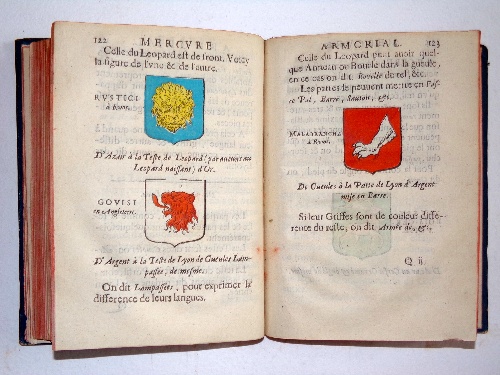 122 MERCVRE
Celle du Leopard est de front. Voicy
la figure de l'vne & de l'autre.
RVSTICI
à Rome.
D'Azur à la Teste de Leopard (par aucuns aux
Leopard naissant) d'Or.
GOVISI
en Angleterre.
D'Argent à la Teste de Lyon de Gueules Lam-
passée, de mesme.
On dit Lampassées, pour exprimer la
difference de leurs langues.
ARMORIAL. 123
Celle du Leopard peut auoir quel-
que Anneau ou Boucle dans la gueule,
en ce cas on dit Bouclée de tel, &c.
Les pattes se peuvent mettre en Fas-
ce Pal, Barre, Sautoir, &c.
MALAFRANCHE
à Rome.
De Gueules à la Patte de Lyon d'Argent
mise en Barre.
Si leur Griffes sont de couleur diffe-
rente du reste, on dit Armée de, &c.
Q ii